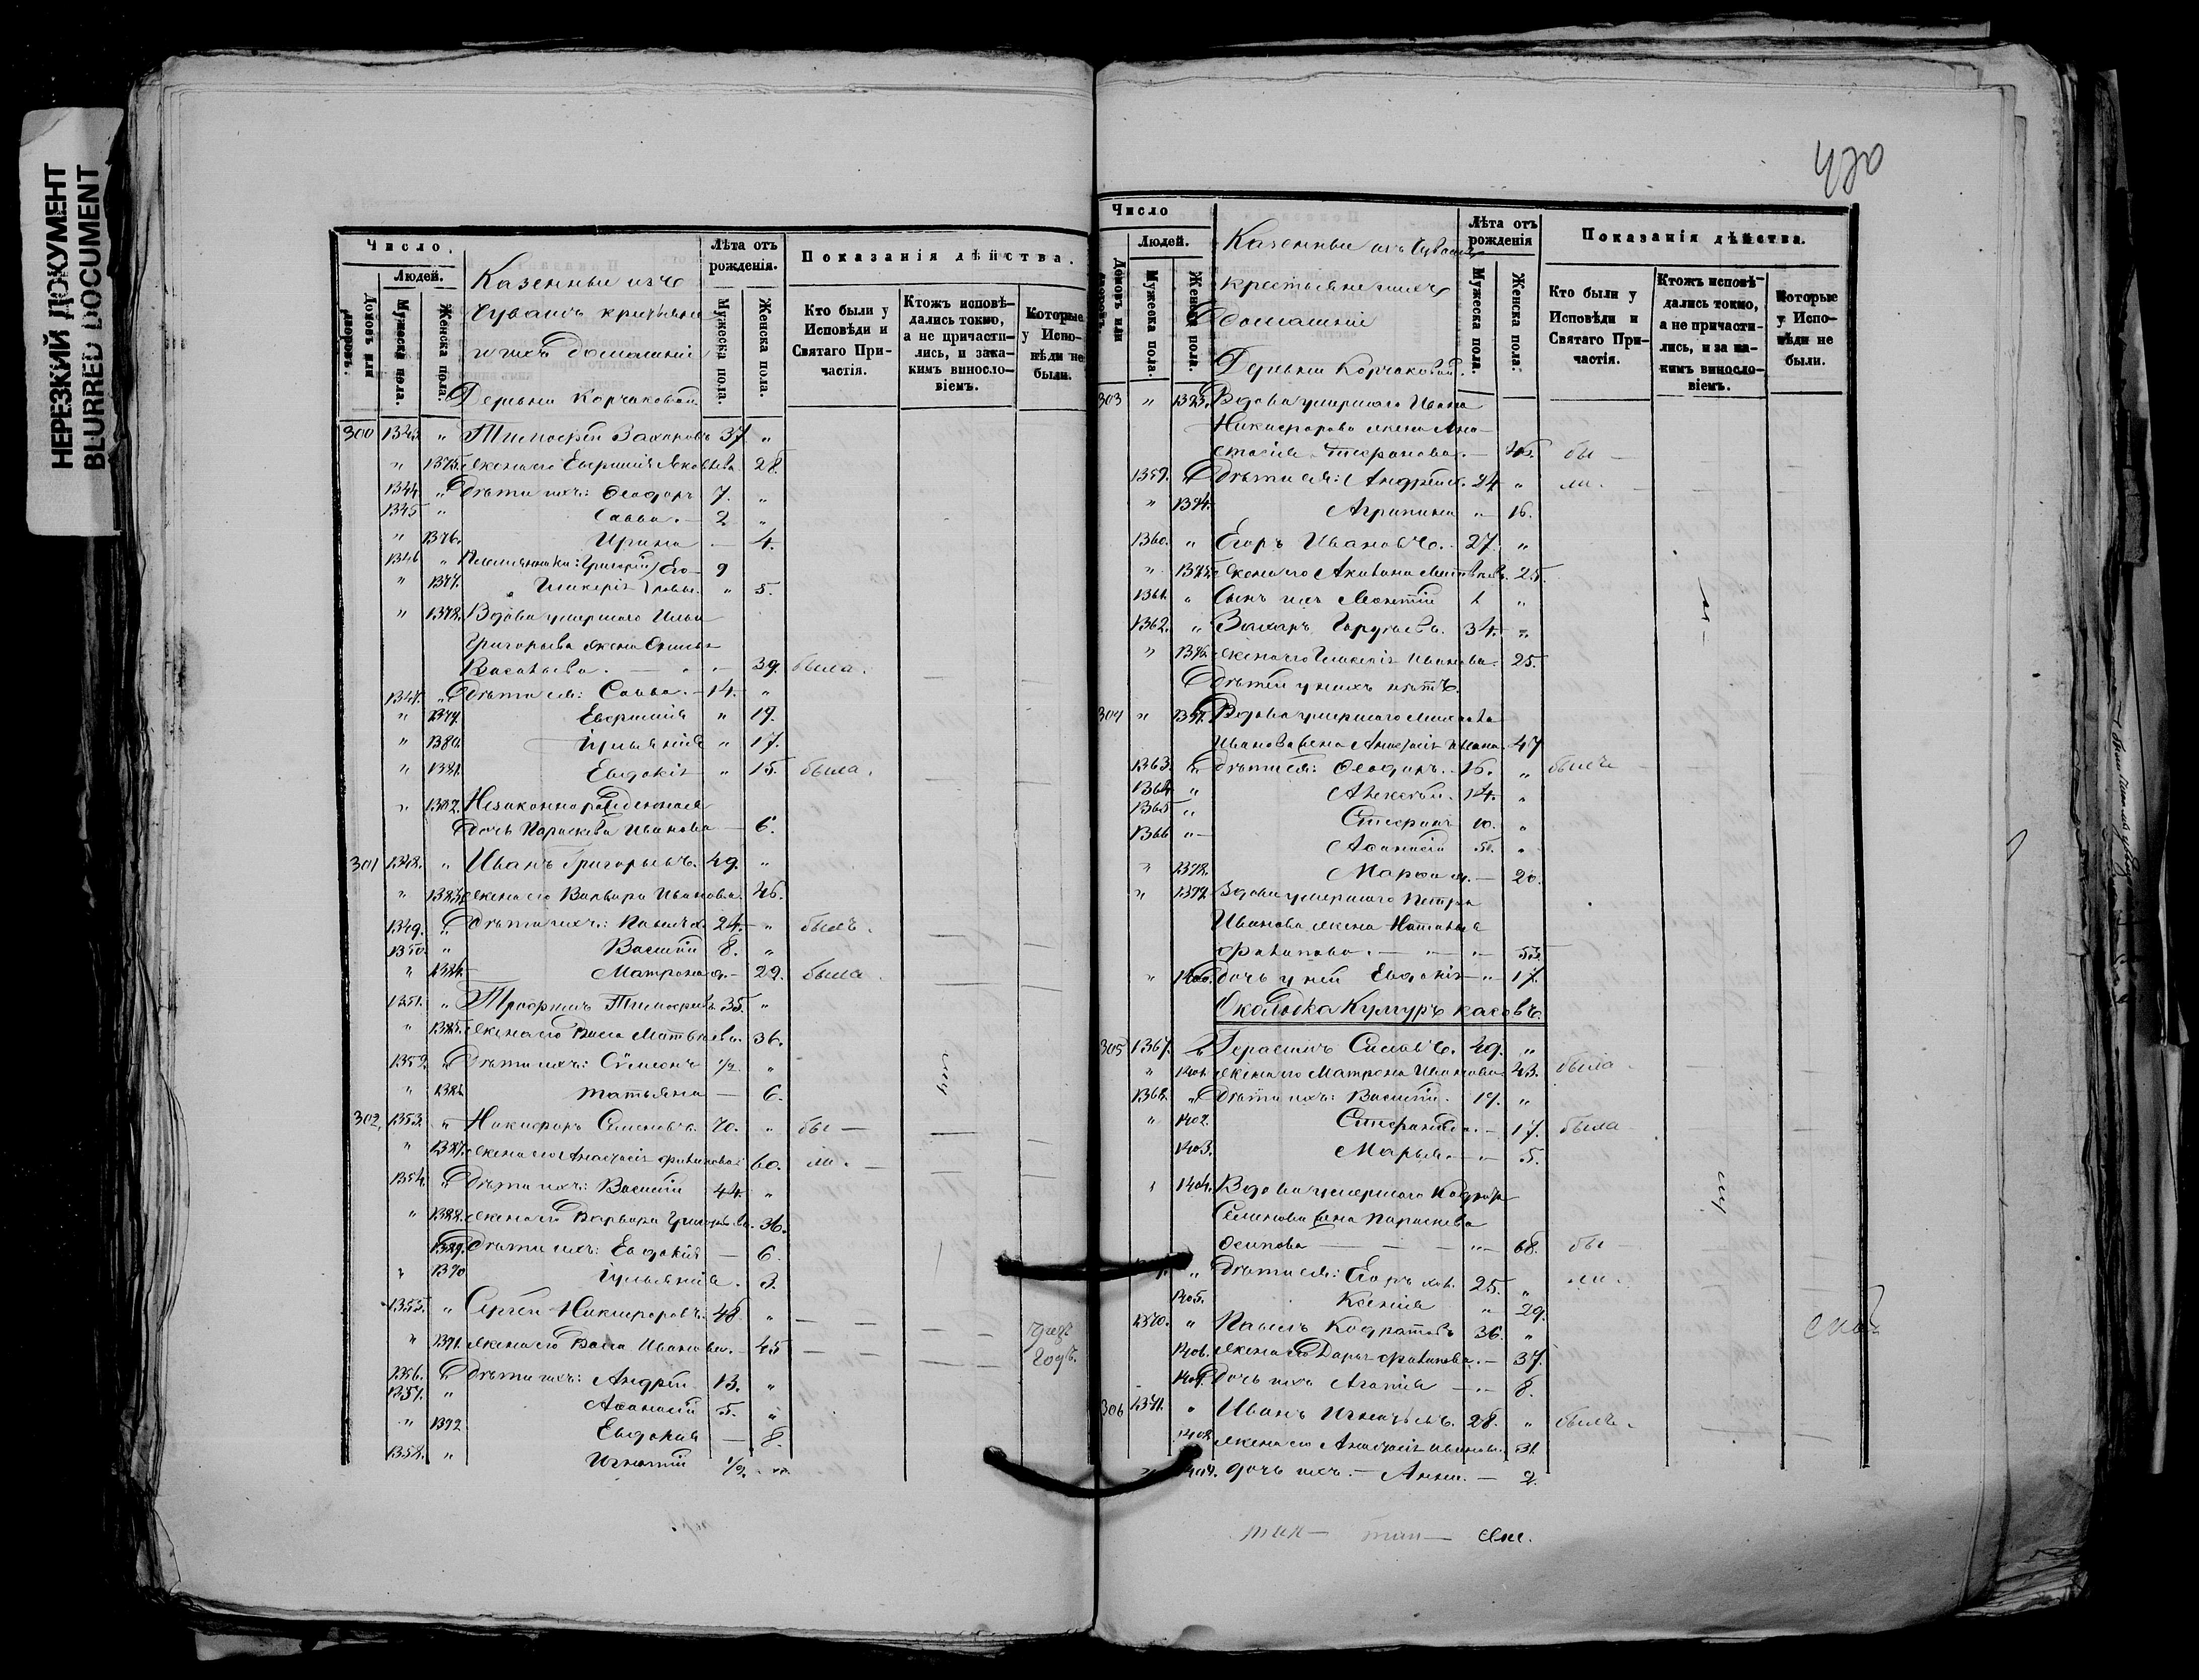 НЕРЕЗКИЙ ДОКУМЕНТ
BLURRED DOCUMENT
Число.
Людей.
Домовъ или дворовъ.
Мужеска пола.
Женска пола.
Казенные изъ
Чувашъ
и ихъ домашніе
Деревни Корчаковой
Лѣта отъ рожденія.
Мужеска пола.
Женска пола.
Показанія дѣйства.
Кто были у Исповѣди и Святаго Причастія.
Ктожъ исповѣдались токмо, а не причастились, и за какимъ винословіемъ.
Которые у Исповѣди не были.
300 1343. " Тимофей Захаровъ 37 "
" 1375. жена его Евфимія Яковлева 28.
1344 " Дѣти ихъ: Ѳеодоръ 7. "
1345 " Савва. 2 "
" 1376. Ирина — 4.
1346 " Племянники: Григорій 9
" 1377. Гликерія " 5.
" 1378. Вдова умершаго Ильи
Григорьева жена
Васильева. — " — 39. была.
1347. " Дѣти ея: Савва. — 14. "
" 1379. Евфимія " 19.
" 1380. Іуліанія " 17.
" 1381. Евдокія " 15. была.
" 1382. Незаконнорожденная
дочь Параскева Иванова — 6.
301 1348. " Иванъ Григорьевъ. 49. "
" 1383. жена его Варвара Иванова. 46.
1349. " Дѣти ихъ: Павелъ х. 24. " былъ.
1350. " Василій 8. "
" 1384. Матрона д. — 22. была.
1351. " Трофимъ Тимофеевъ 35. "
" 1385. жена его Васса Матвѣева. 36.
1352. " Дѣти ихъ: Сѵмеонъ 1/2. "
" 1386. Татьяна — 6.
302. 1353. " Никифоръ Семеновъ. 70. " бы —
" 1387. жена его Анастасія Филипова 60. ли. —
1354. " Дѣти ихъ: Василій 44. "
" 1388. жена его Варвара Григорьева. 36.
1389. Дѣти ихъ: Евдокія — 6.
" 1390 Іуліанія. 3.
1355. " Сергей Никифоровъ. 48. "
" 1391. жена его Васса Иванова. — 45
1356. " Дѣти ихъ: Андрей 13. "
1357. " Аѳанасій 5. "
" 1392 Евдокія — 8.
1358. " Игнатій 1/2. "
годъ.
420
Число
Людей.
Домовъ или дворовъ.
Мужеска пола.
Женска пола.
Казенные изъ Чувашъ
крестьяне и ихъ
домашніе
Деревни Корчаковой.
Лѣта отъ рожденія
Мужеска пола.
Женска пола.
Показанія дѣйства.
Кто были у Исповѣди и Святаго Причастія.
Ктожъ исповѣдались токмо, а не причастились, и за какимъ винословіемъ.
Которые у Исповѣди не были.
303 " 1393. Вдова умершаго Ивана
Никифорова жена Ана—
стасія Стефанова. — 46. бы —
1359. " Дѣти ея: Андрей х. 24 " ли.
" 1394. Агрипина " 16.
1360. " Егоръ Ивановъ. 27. "
" 1395. жена его Акилина Матвѣева. 25.
1361. " Сынъ ихъ Леонтій 1 "
1362. " Захаръ Гордѣевъ. 34. "
" 1396. жена его Гликерія Иванова. 25.
Дѣтей у нихъ нѣтъ.
304 " 1397. Вдова умершаго Михаила
Иванова жена Анастасія Иванова. 47
1363. " Дѣти ея: Ѳеодоръ. — 16. " былъ
1364. " Алексѣй. 14. "
1365 " Стефанъ 10. "
1366 " — Аѳанасій "
" 1398. Марѳа д. — 20.
" 1399. Вдова умершаго Петра
Иванова жена Наталья
Филипова. — " — 53.
" 1400. дочь у ней Евдокія — " — 17.
Околодка
305 1367. " Герасимъ 49. "
" 1401. жена его Матрона Иванова 43. была.
1368. " Дѣти ихъ: Василій. 19. "
" 1402. Стефанида. — 17. была
1403. Марья. — " — 5.
" 1404. Вдова умершаго Кодрата
Семенова жена Параскева
Осипова — " — 68. бы —
" Дѣти ея: Егоръ хол. 25. " ли.
1405. Ксенія " 29.
1370. " Павелъ Кодратовъ 36. "
1406. жена его Дарья Филипова. — 37.
1407. Дочь ихъ Агафія — " — 8.
306 1371. " Иванъ Игнатьевъ. 28. " былъ.
1408. жена его Анастасія Иванова. 31.
1409. дочь ихъ. — Анна. — 2.